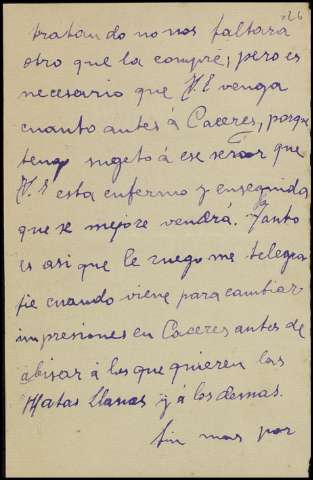 226
tratando no nos faltara
otro que la compre, pero es
necesario que V. E venga
cuanto antes á Caceres, porque
tengo sugeto á ese señor que
V. E esta enfermo y enseguida
que se mejore vendrá. Tanto
es asi que le ruego me telegra
fie cuando viene para cambiar
impresiones en Caceres antes de
abisar á los que quieren las
Matas Llanas y á los demas.
Sin mas por